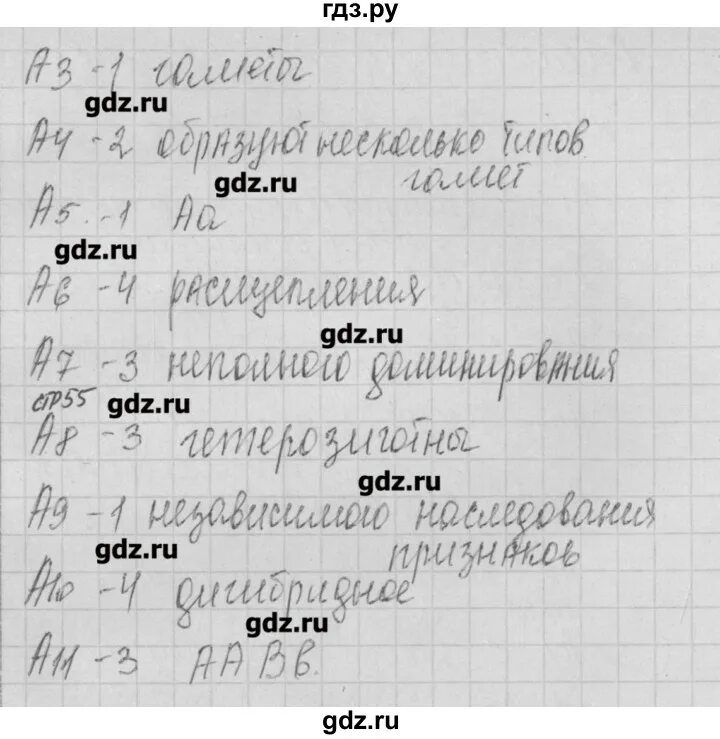 гдз.ру
А3 -1 гаметы
gdz.ru
А4 -2 образуют несколько типов
gdz.ru гамет
А5. -1 Аа
gdz.ru
А6 -4 расщепления
gdz.ru
А7 -3 неполного доминирования
стр55 gdz.ru
А8 -3 гетерозиготны
gdz.ru
А9 -1 независимого наследования
gdz.ru признаков
А10 -4 дигибридное
gdz.ru
А11 -3 ААВв.
gdz.ru